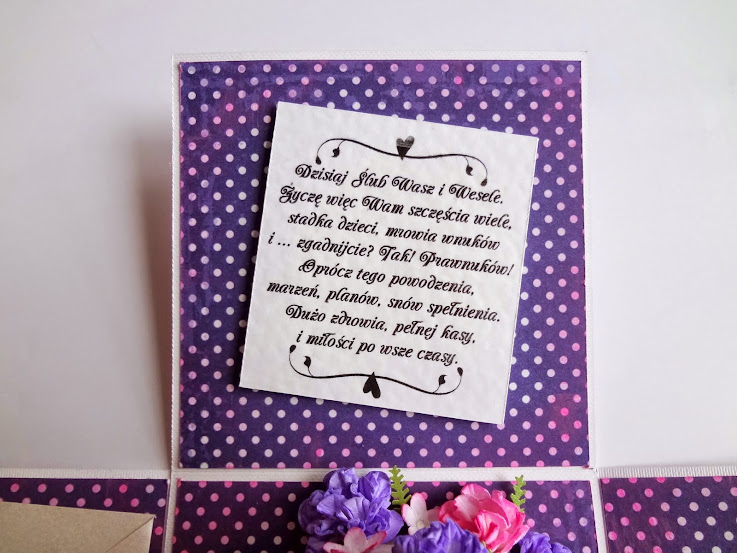 Dzisiaj Ślub Wasz i Wesele.
Życzę więc Wam szczęścia wiele,
stadka dzieci, mrowia wnuków
i ... zgadnijcie? Tak! Prawnuków!
Oprócz tego powodzenia,
marzeń, planów, snów spełnienia.
Dużo zdrowia, pełnej kasy,
i miłości po wsze czasy.